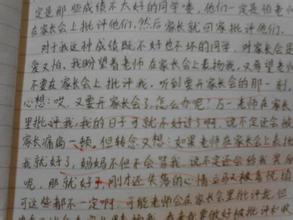 定是那些成绩不太好的同学委,他们一定是怕老师
在家长会上批评他们,然后家长就回家批评他们。
对于我这种成绩既不好也不坏的同学,对家长会是
爱又怕。我盼望着老师在家长会上表扬我,又希望老师
不要在家长会上批评我,听到要开家长会的那一刻,
心想:哎,又要开家长会了,怎么办呢?万一老师在家长
里批评我,我的日子可就不好过了啊,说不定还会被
家长痛扁一顿,但转念又想:如果老师在家长会上表扬
我就好了,妈妈不但不会骂我,说不定还会给我
呢,那就好了,刚才还失落的心情立刻
可这些都不一定啊,可能老师会在家长会里批评我,但